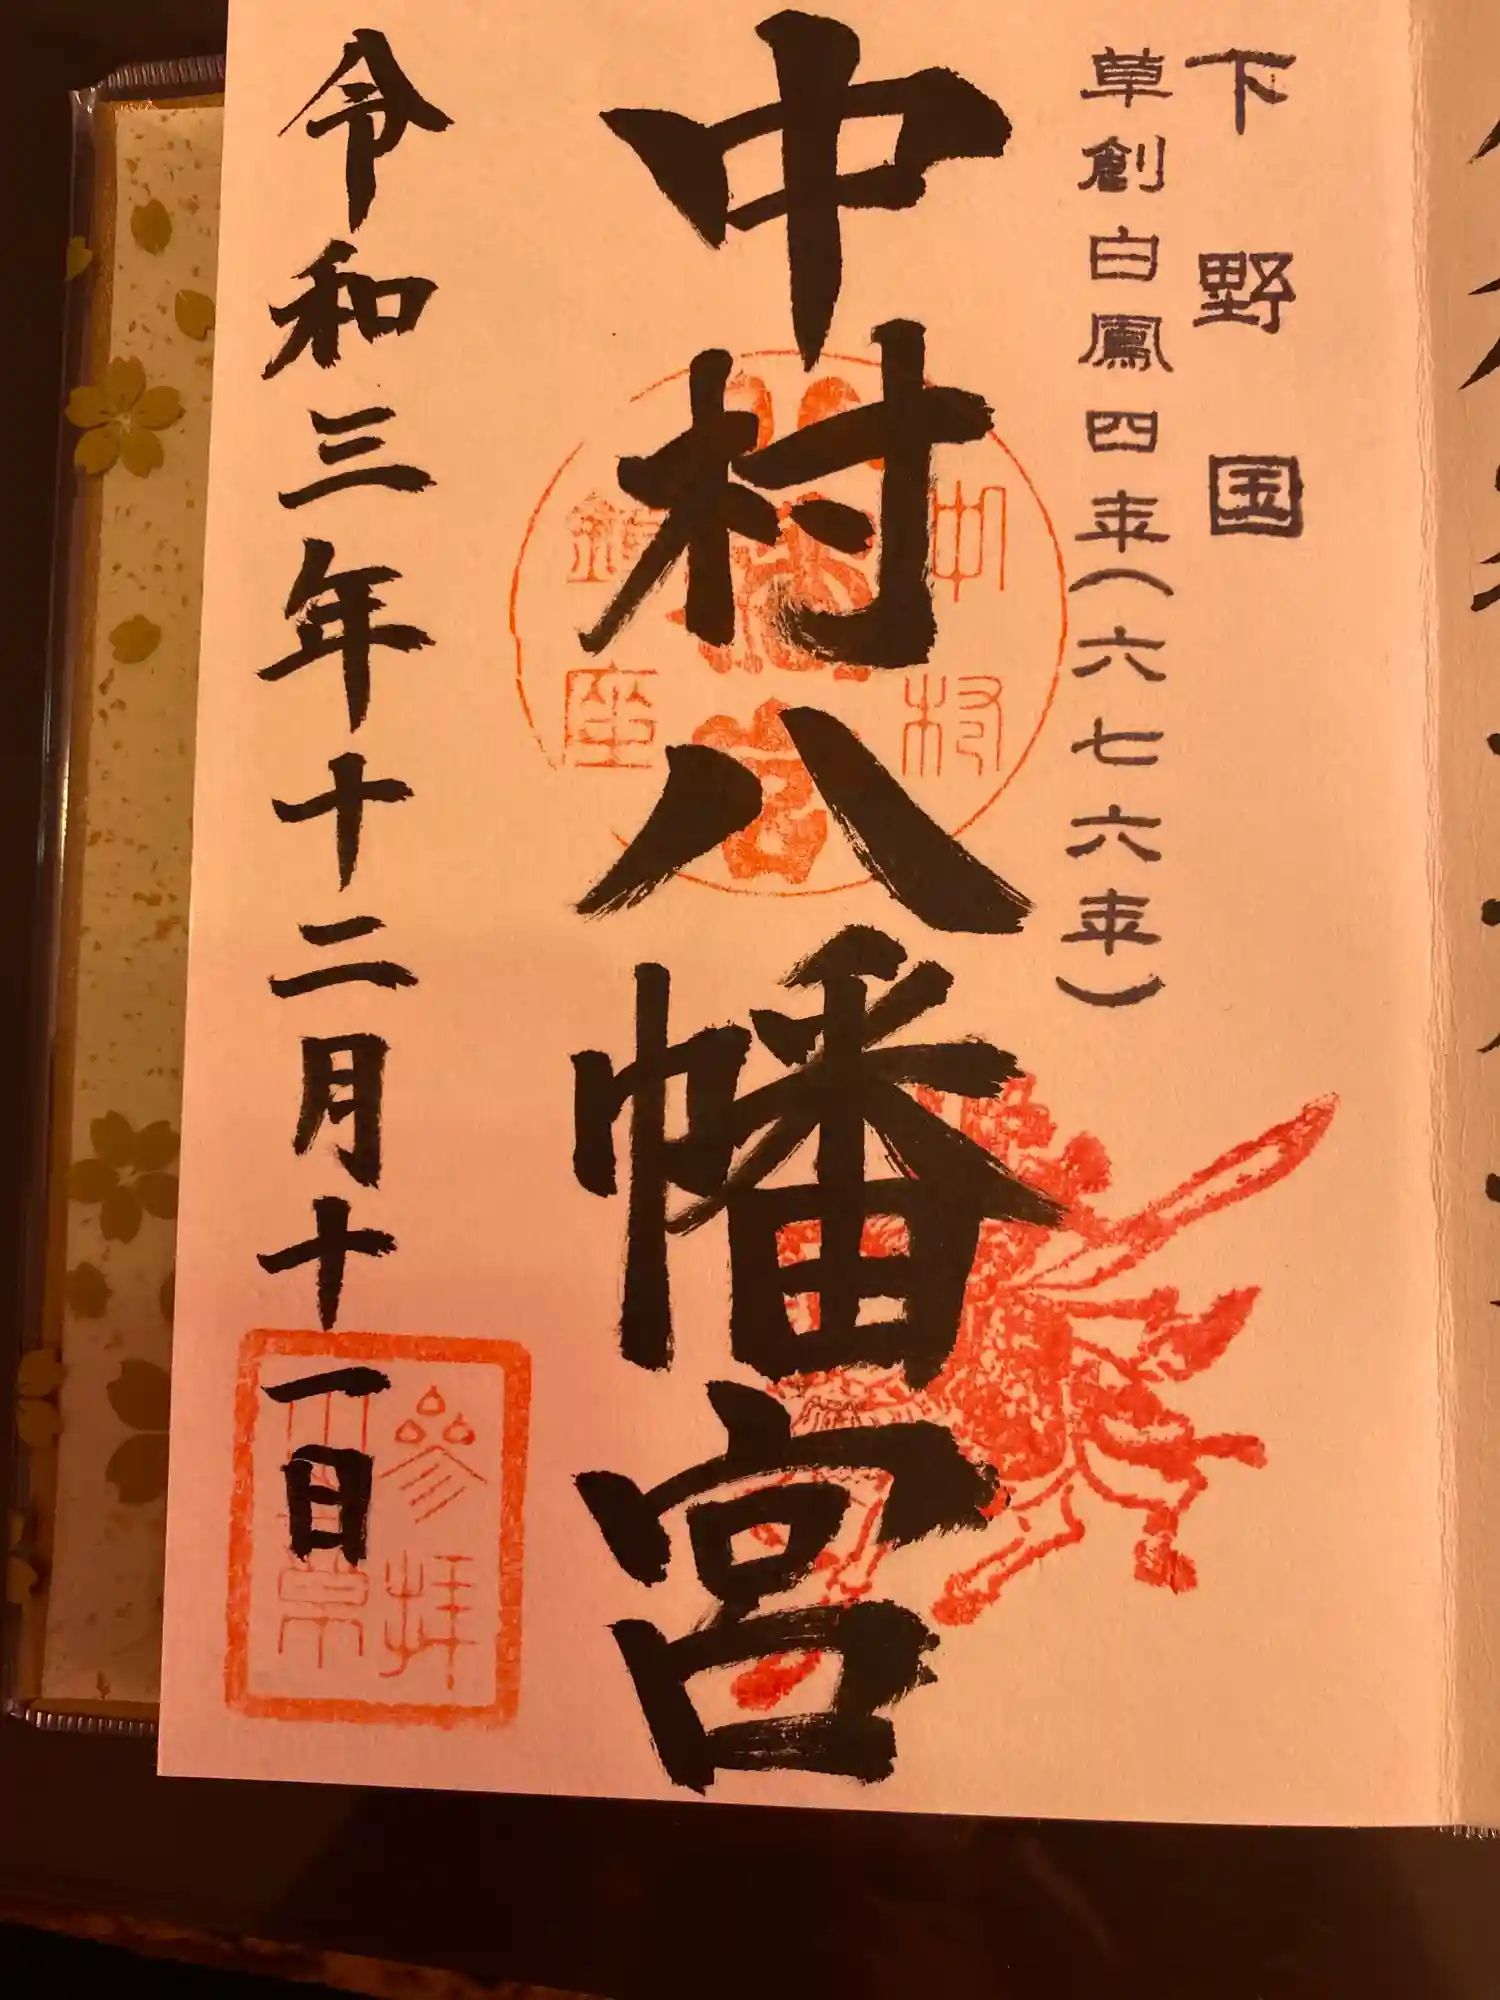 下野国
草創白鳳四年(六七六年)
中村八幡宮
中村
八幡宮
鎮座
令和三年十二月十一日
参拝